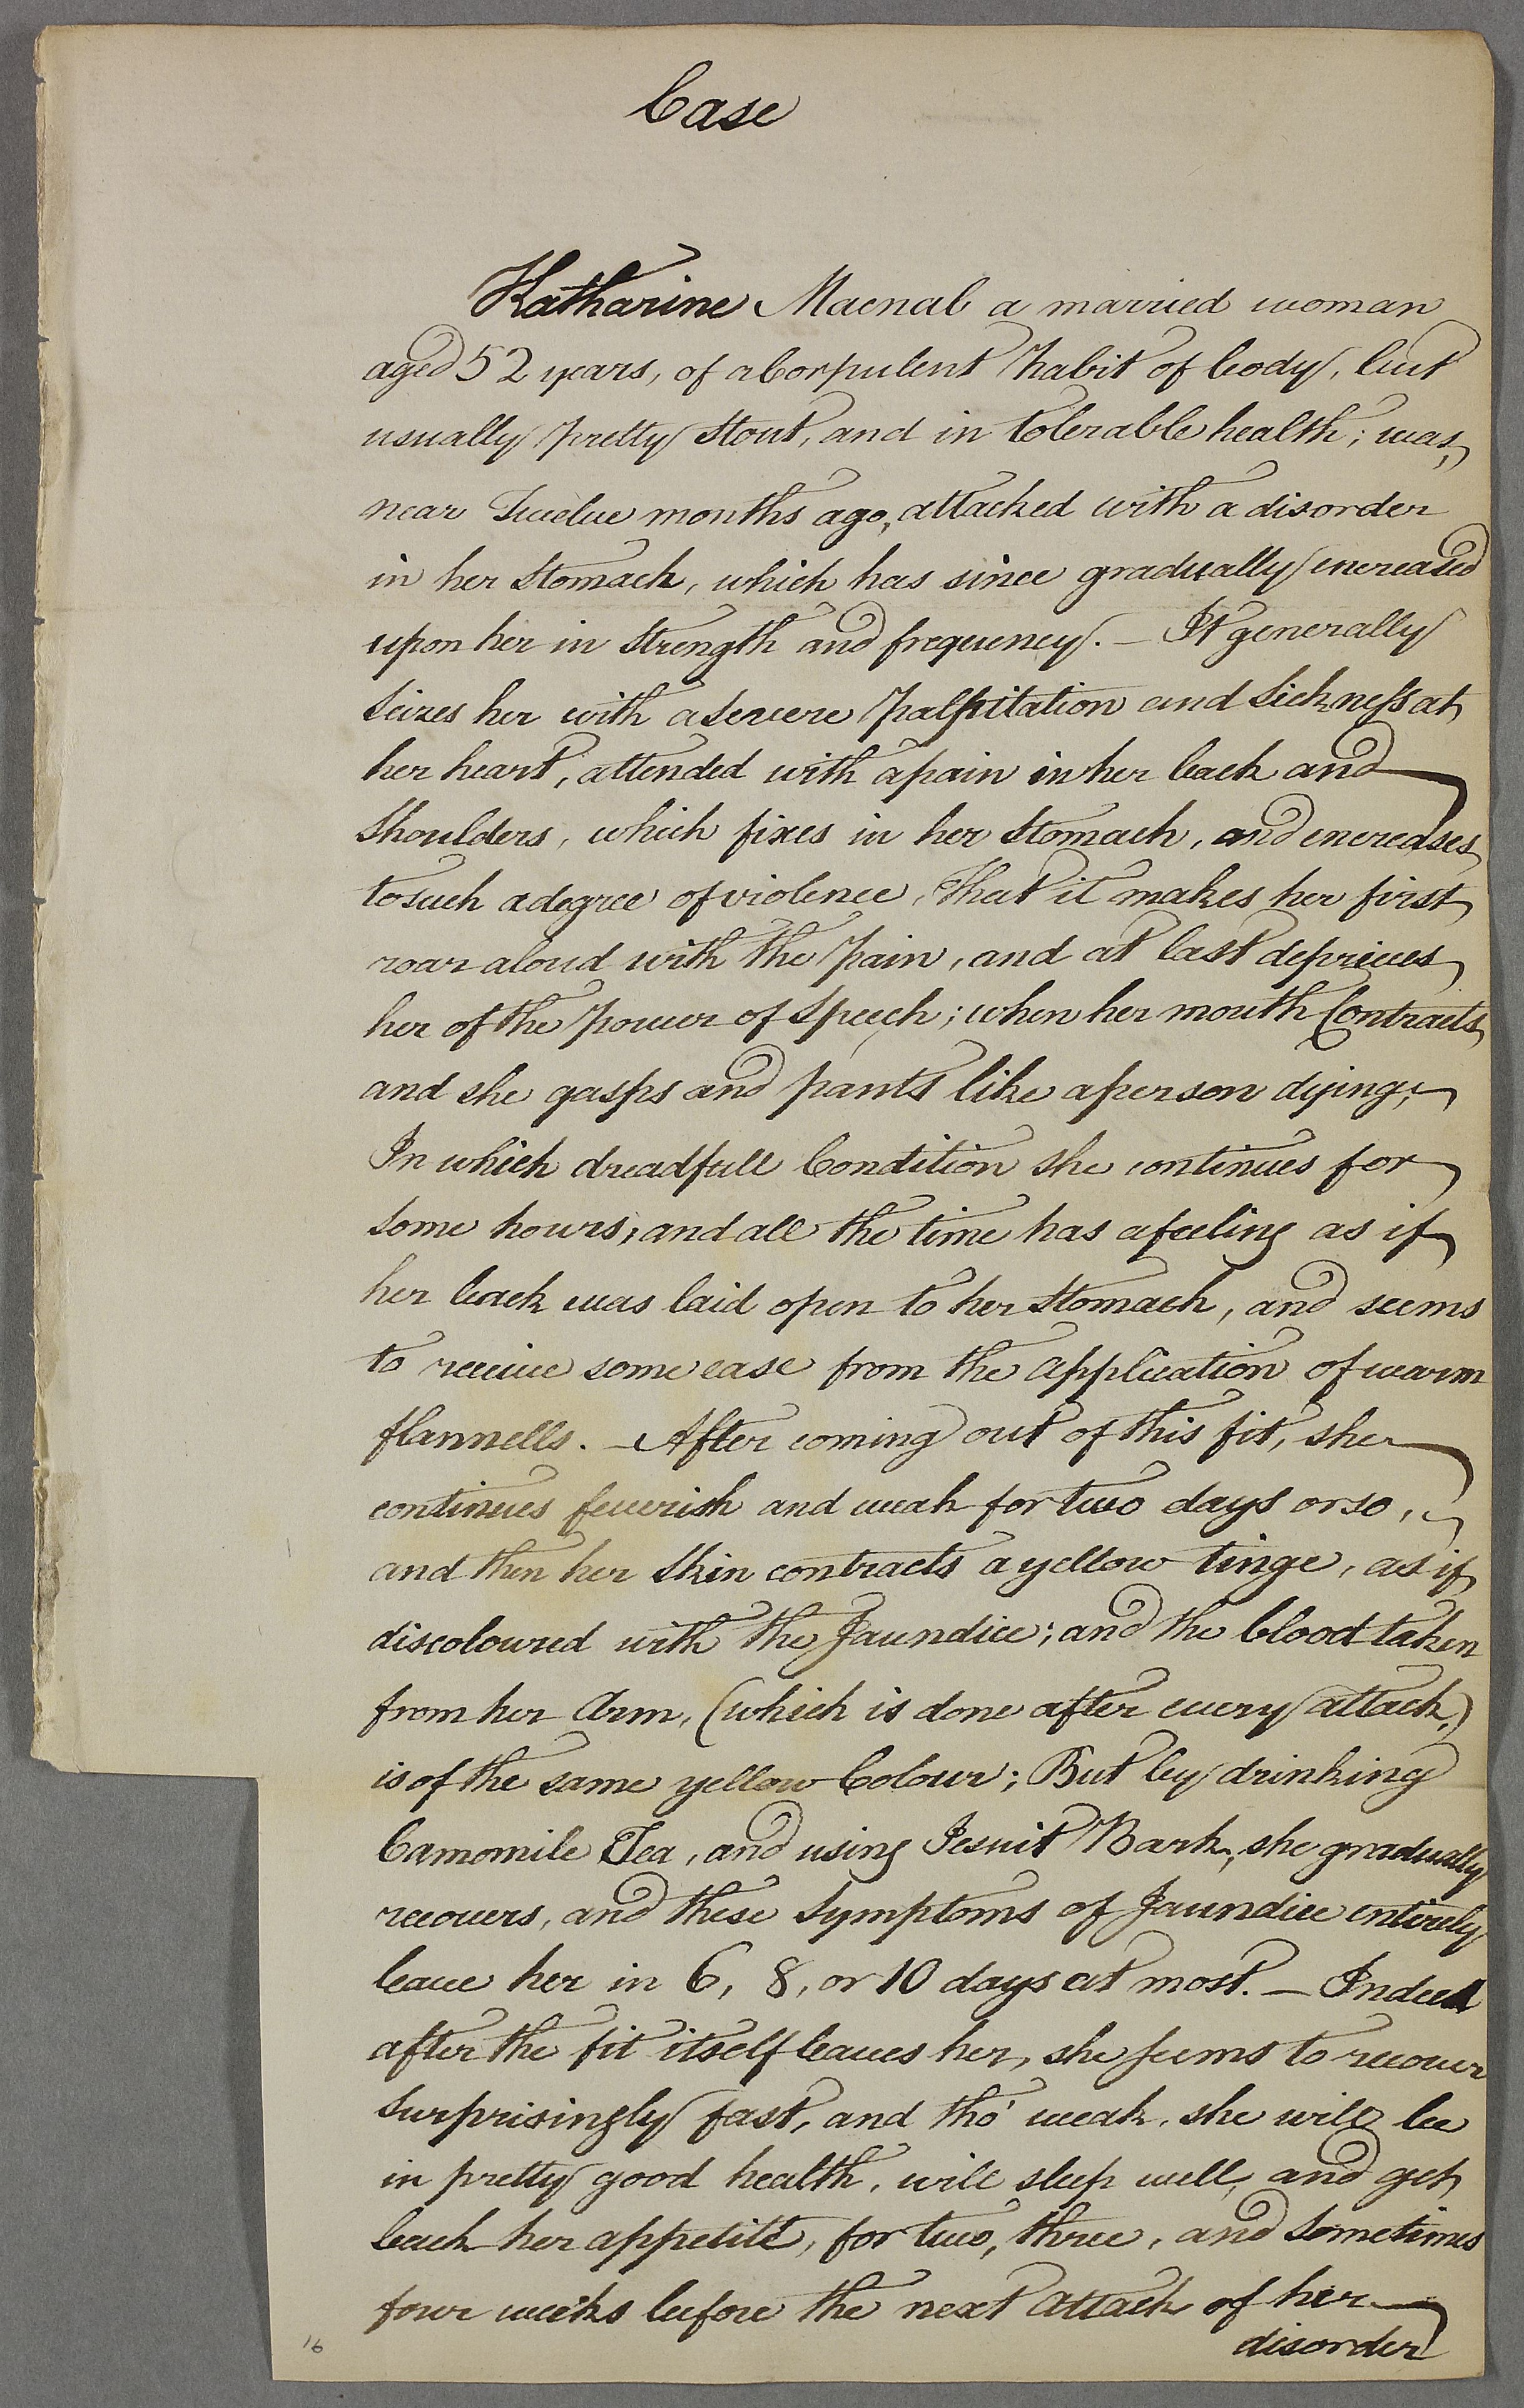 Case
Katharine Macnab a married woman
aged 52 years, of a Corpulent habit of body, but
usually pretty stout, and in tolerable health; was,
near Twelve months ago, attacked with a disorder
in her Stomach, which has since gradually encreased
upon her in Strength and frequency. — It generally
Seizes her with a severe palpitation and Sickness at
her heart, attended with a pain in her back and
Shoulders, which fixes in her Stomach, and encreases
to such a degree of violence, that it makes her first
roar aloud with the pain, and at last deprives
her of the power of Speech; when her mouth Contracts
and she gasps and pants like a person dying;
In which dreadfull Condition she continues for
some hours, and all the time has a feeling as if
her back was laid open to her Stomach, and seems
to receive some ease from the application of warm
flannells. — After coming out of this fit, she
continues feverish and weak for two days or so,
and then her Skin contracts a yellow tinge, as if
discoloured with the Jaundice; and the blood taken
from her Arm, (which is done after every attack,)
is of the same yellow Colour; But by drinking
Camomile Tea, and using Jesuit Bark, she gradually
recovers, and these Symptoms of Jaundice entirely
leave her in 6, 8, or 10 days at most. — Indeed
after the fit itself leaves her, she seems to recover
Surprisingly fast, and tho' weak, she will be
in pretty good health, will sleep well, and get
back her appetite, for two, three, and Sometimes
four weeks before the next attack of her
disorder
16